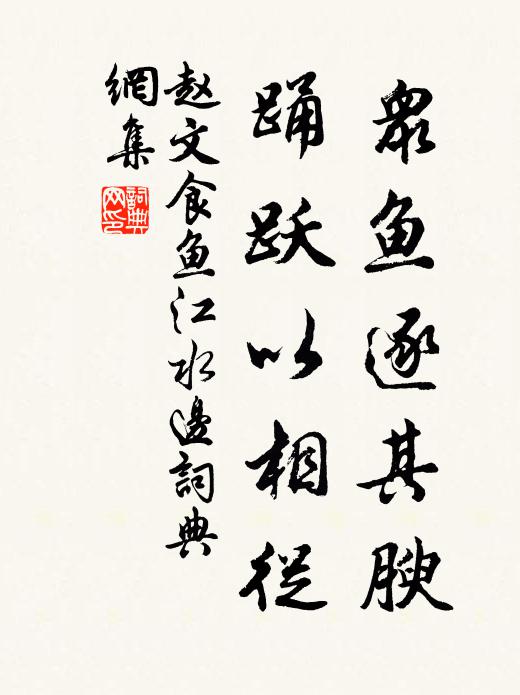 衆鱼逐其腴
踊跃以相從
赵文食鱼江水邊詞典
網集
詞典
网印